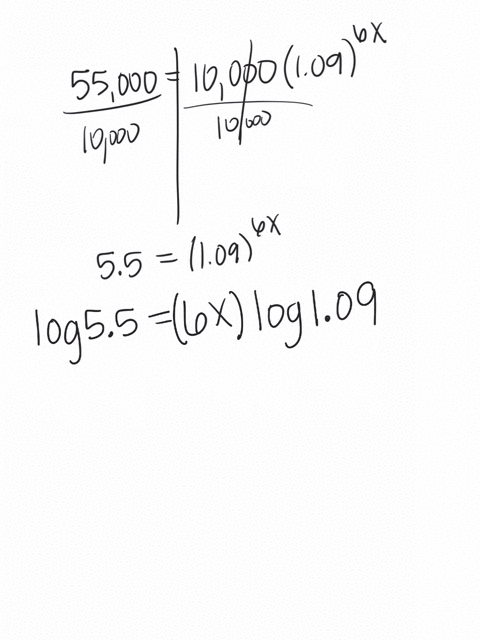 55,000 = 10,000 (1.09)^6x
10,000 10,000
5.5 = (1.09)^6x
log5.5 = (6x) log1.09